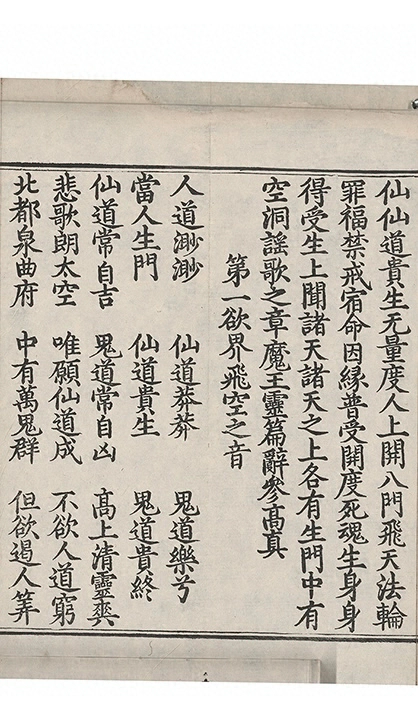 仙仙道貴生无量度人上開八門飛天法輪
罪福禁戒宿命因緣普受開度死魂生身身
得受生上聞諸天諸天之上各有生門中有
空洞謠歌之章魔王靈篇辭參髙真
第一欲界飛空之音
人道渺渺 仙道莽莽 鬼道樂兮
當人生門 仙道貴生 鬼道貴終
仙道常自吉 鬼道常自凶 髙上清靈爽
悲歌朗太空 唯願仙道成 不欲人道窮
北都泉曲府 中有萬鬼群 但欲遏人筭